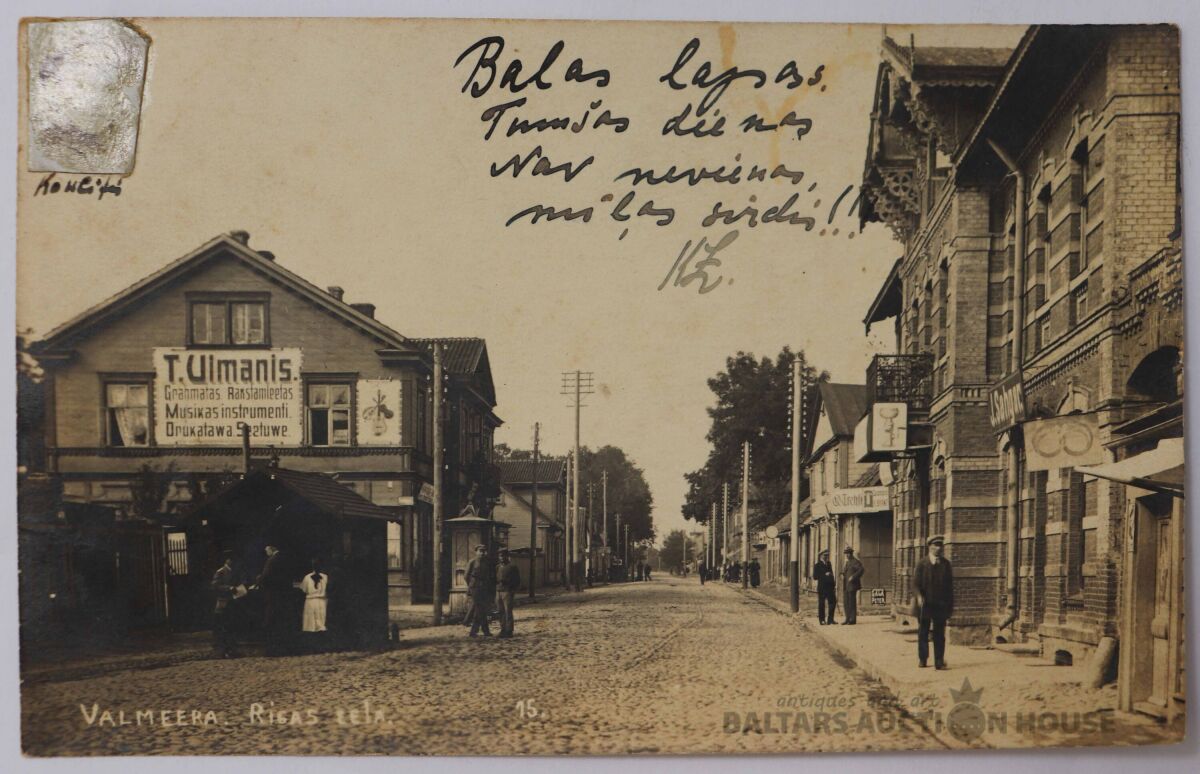 Balas lapsas,
Tumšas dienas
Nav nevienas,
mīļas sirdis!!
KZ.
T. Ulmanis.
Grahmatas. Rakstamleetas
Musikas instrumenti.
Drukatawa. Seetuwe.
VALMEERA. RIGAS eela.
15.
antiques and art
BALTARS AUCTION HOUSE